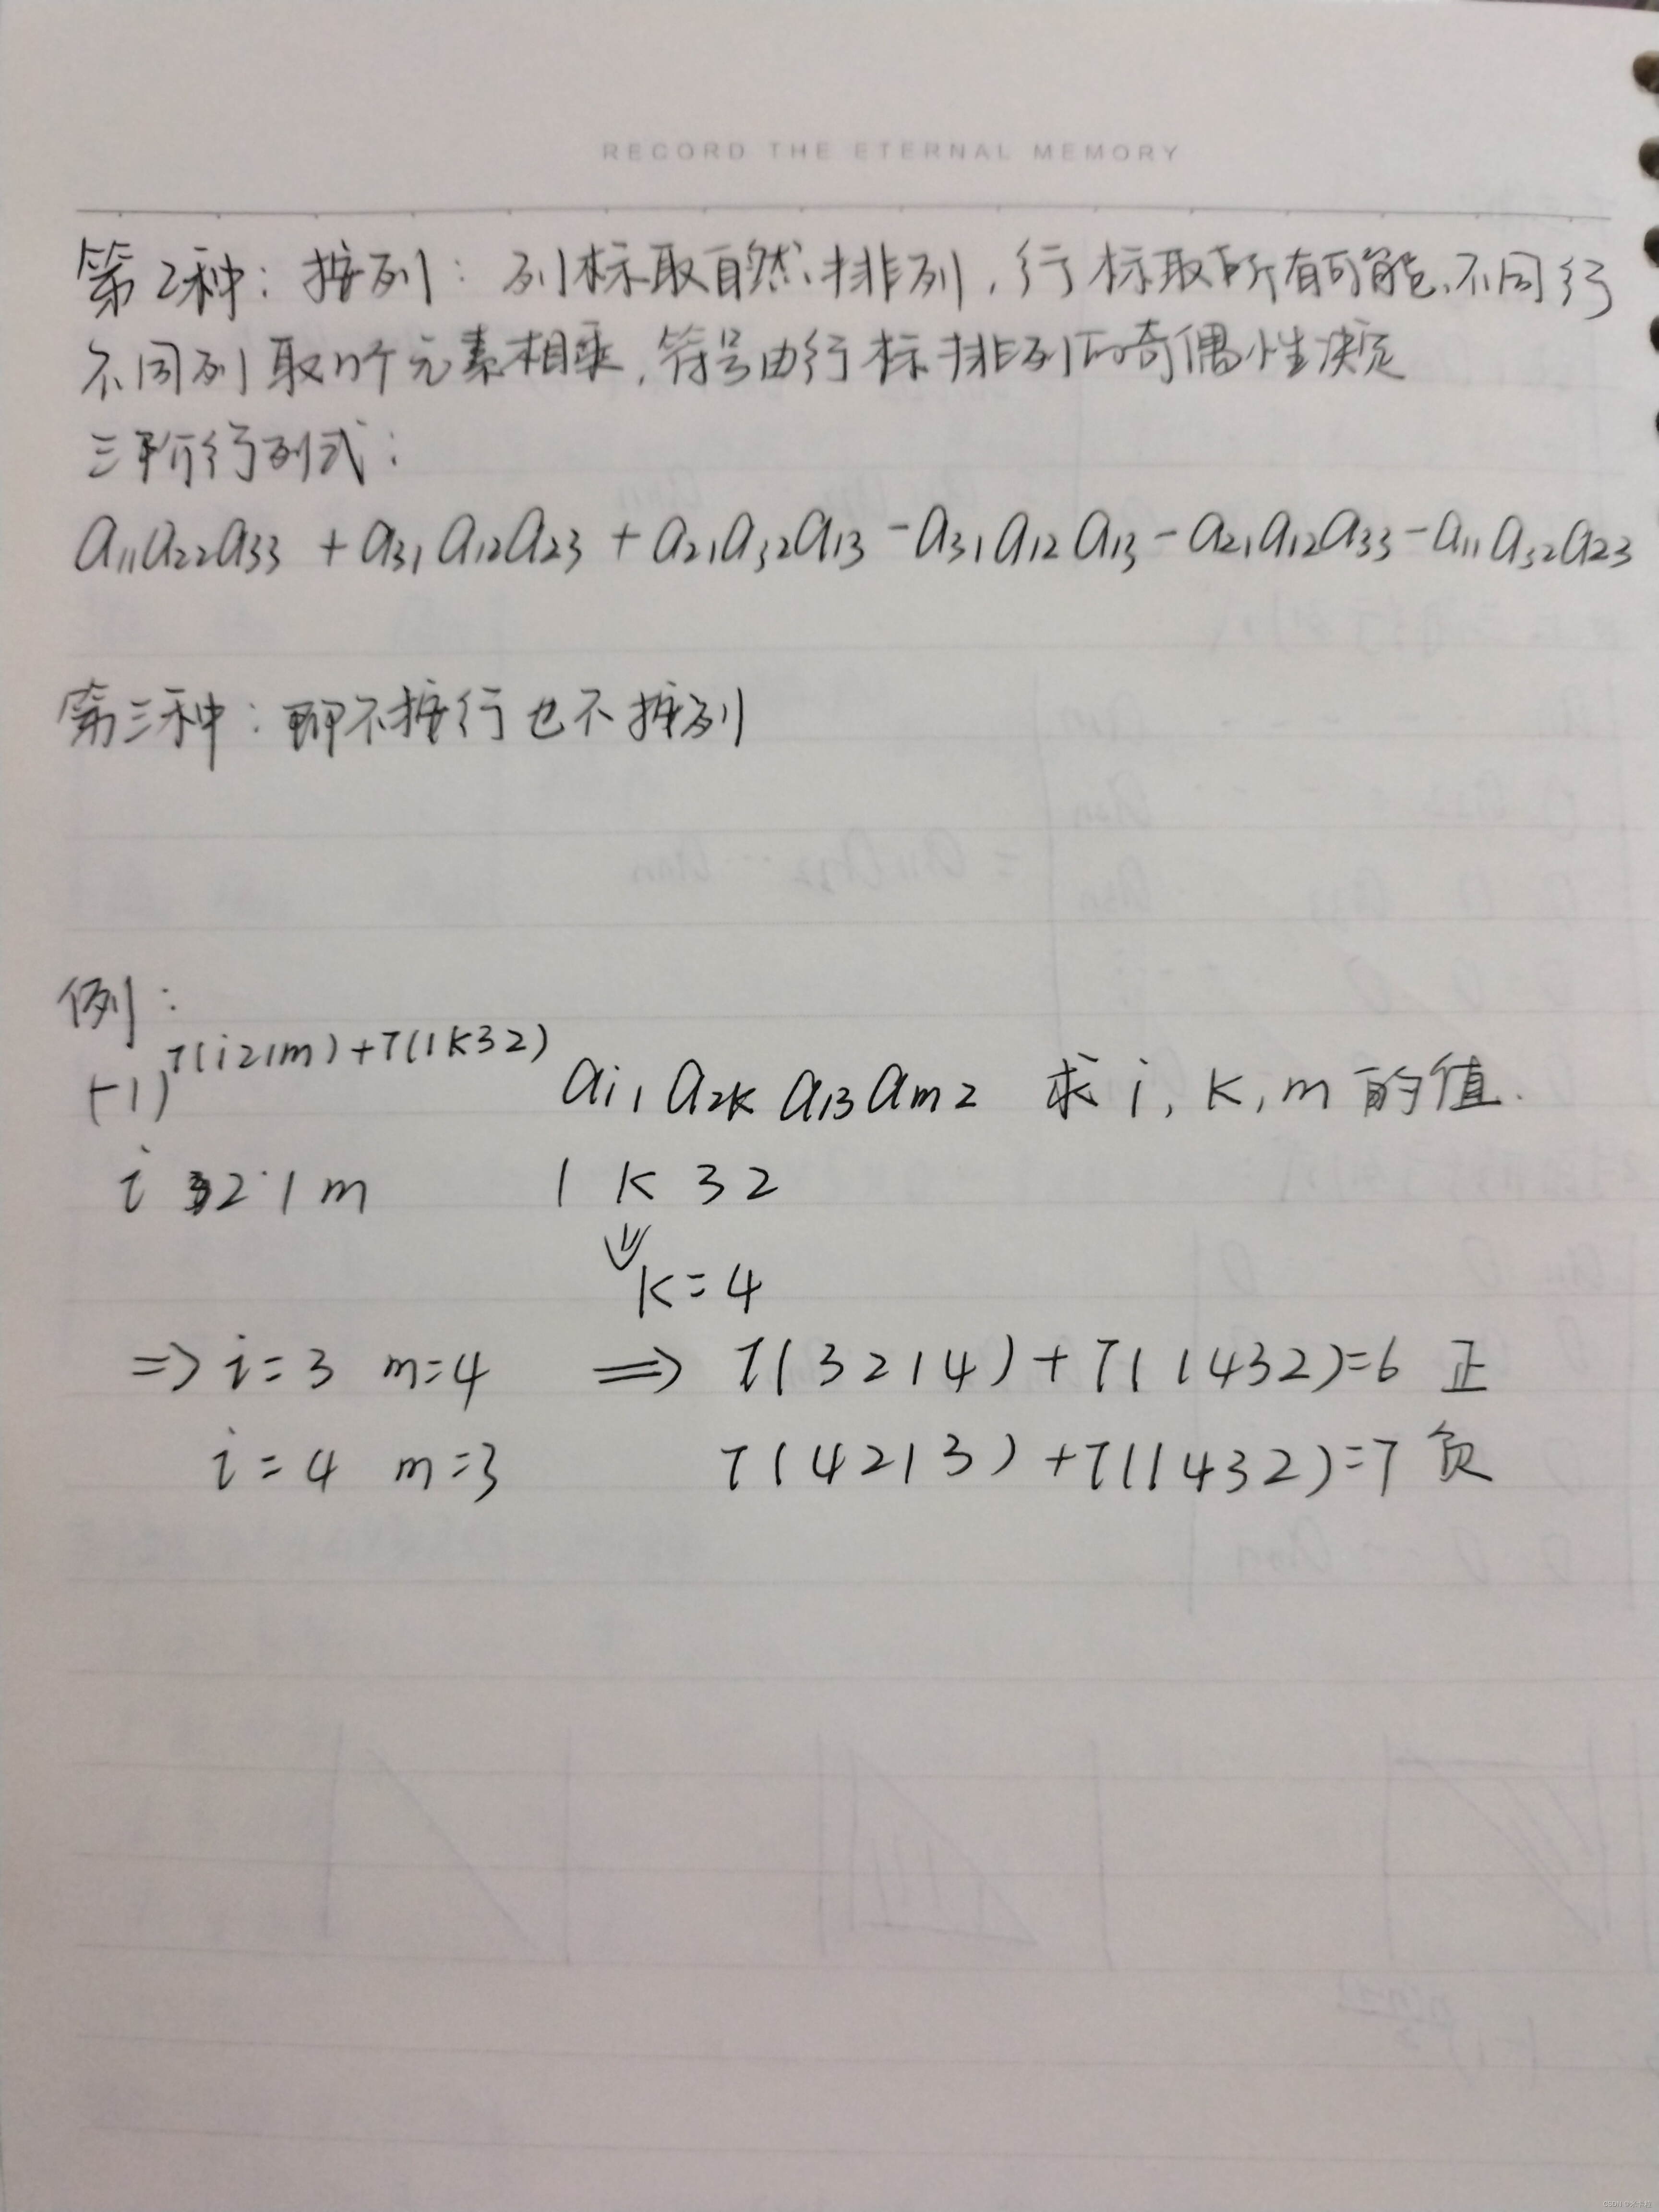 RECORD THE ETERNAL MEMORY
第2种：按列：列标取自然排列，行标取所有可能，不同行
不同列取n个元素相乘，符号由行标排列的奇偶性决定
三阶行列式：
a₁₁a₂₂a₃₃ + a₃₁a₁₂a₂₃ + a₂₁a₃₂a₁₃ - a₃₁a₁₂a₁₃ - a₂₁a₁₂a₃₃ - a₁₁a₃₂a₂₃
第三种：不按行也不按列
例：
(-1)^τ(i21m)+τ(1k32) aᵢ₁ a₂ₖ a₁₃ aₘ₂ 求 i, k, m 的值.
i 2 1 m 1 k 3 2
⇓
k=4
⇒ i=3 m=4 ⇒ τ(3214)+τ(1432)=6 正
i=4 m=3 τ(4213)+τ(1432)=7 负